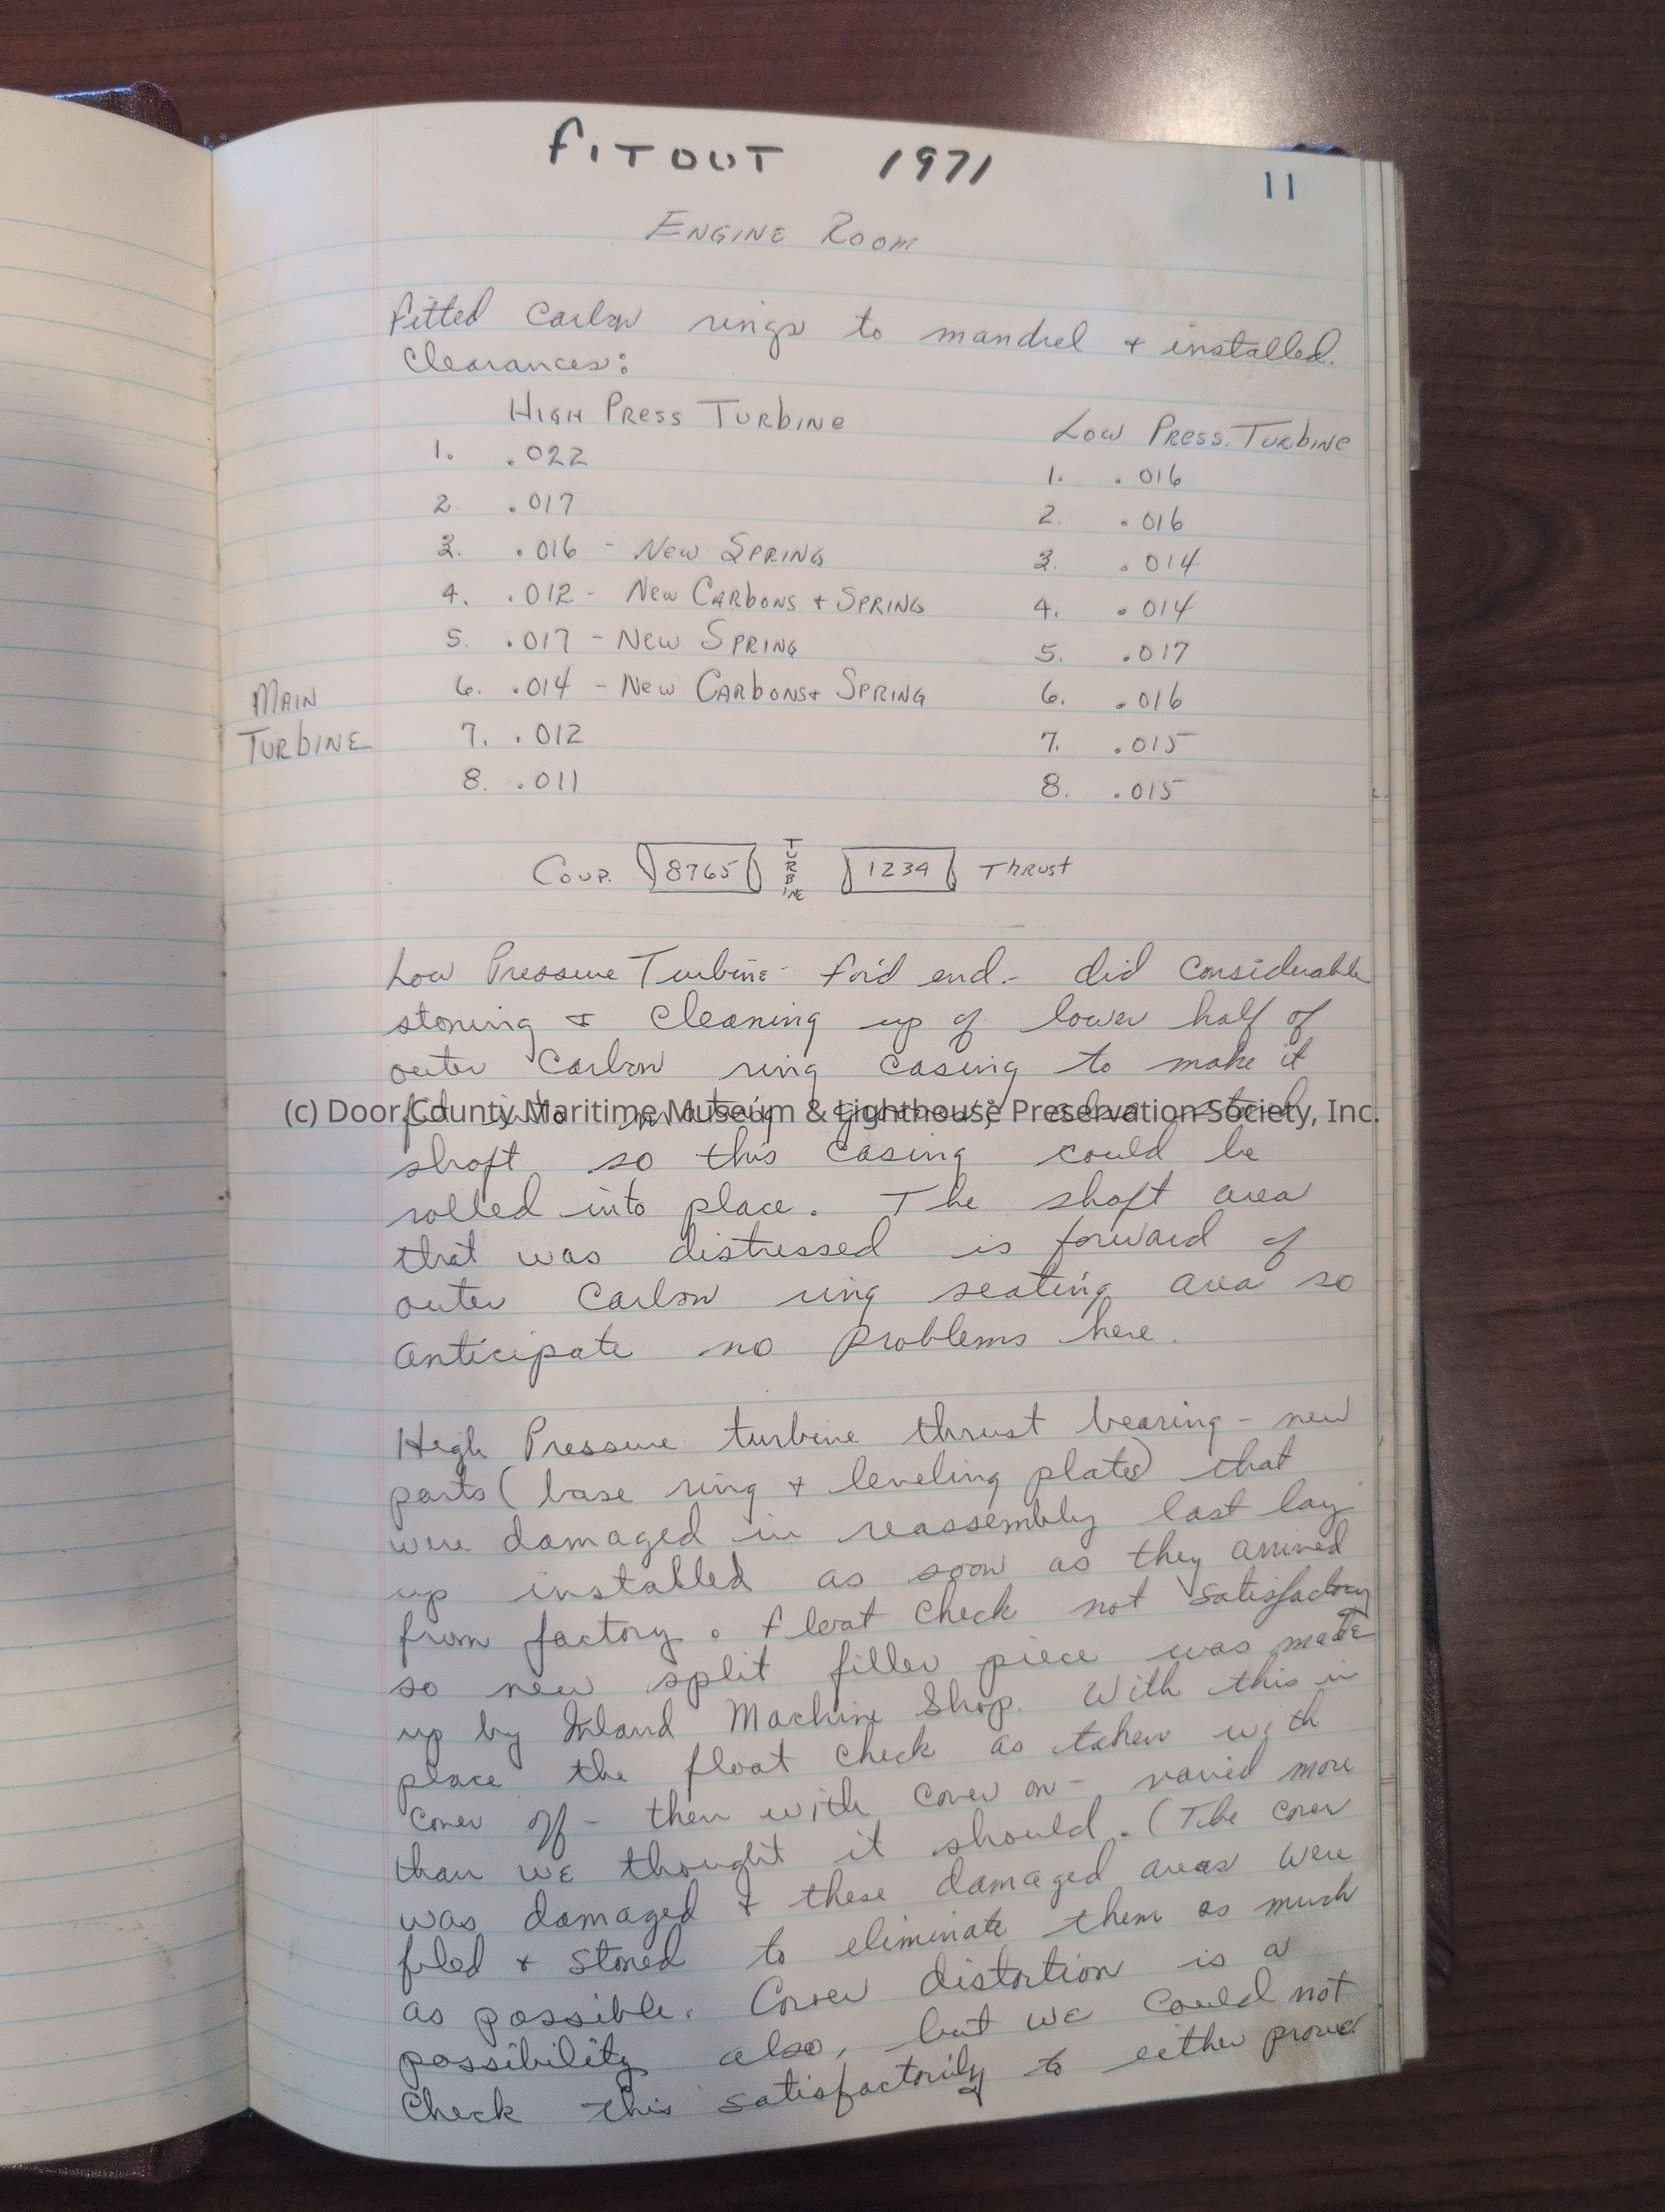 FITOUT 1971
11
ENGINE ROOM
Fitted Carbon rings to mandrel + installed.
Clearances:
HIGH PRESS TURBINE
LOW PRESS. TURBINE
1. .022
1. .016
2. .017
2. .016
3. .016 - NEW SPRING
3. .014
4. .012 - NEW CARBONS + SPRING
4. .014
5. .017 - NEW SPRING
5. .017
6. .014 - NEW CARBONS + SPRING
6. .016
MAIN
TURBINE
7. .012
7. .015
8. .011
8. .015
COUP. 8765 TURBINE 1234 THRUST
Low Pressure Turbine - for'd end. - did considerable
stoning & cleaning up of lower half of
outer Carbon ring casing to make it
(c) Door County Maritime Museum & Lighthouse Preservation Society, Inc.
shaft so this casing could be
rolled into place. The shaft area
that was distressed is forward of
outer Carbon ring seating area so
anticipate no problems here.
High Pressure turbine thrust bearing - new
parts (base ring + leveling plates) that
were damaged in reassembly last lay
up installed as soon as they arrived
from factory. Float check not satisfactory
so new split filler piece was made
up by Inland Machine Shop. With this in
place the float check as taken with
cover off - then with cover on - varied more
than we thought it should. (The cover
was damaged & these damaged areas were
filed + stoned to eliminate them as much
as possible. Cover distortion is a
possibility also, but we could not
check this satisfactorily to either prove